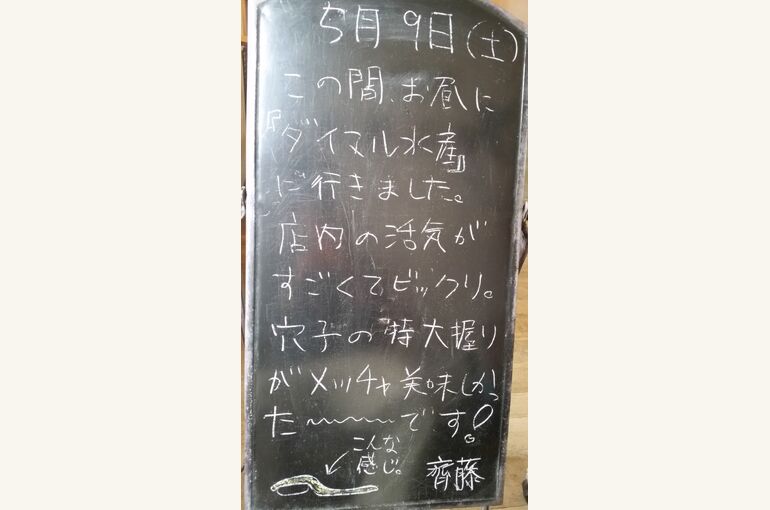 5月9日(土)
この間、お昼に
『ダイマル水産』
に行きました。
店内の活気が
すごくてビックリ。
穴子の特大握り
がメッチャ美味しかっ
た〜〜〜〜です!
こんな
感じ。
齊藤